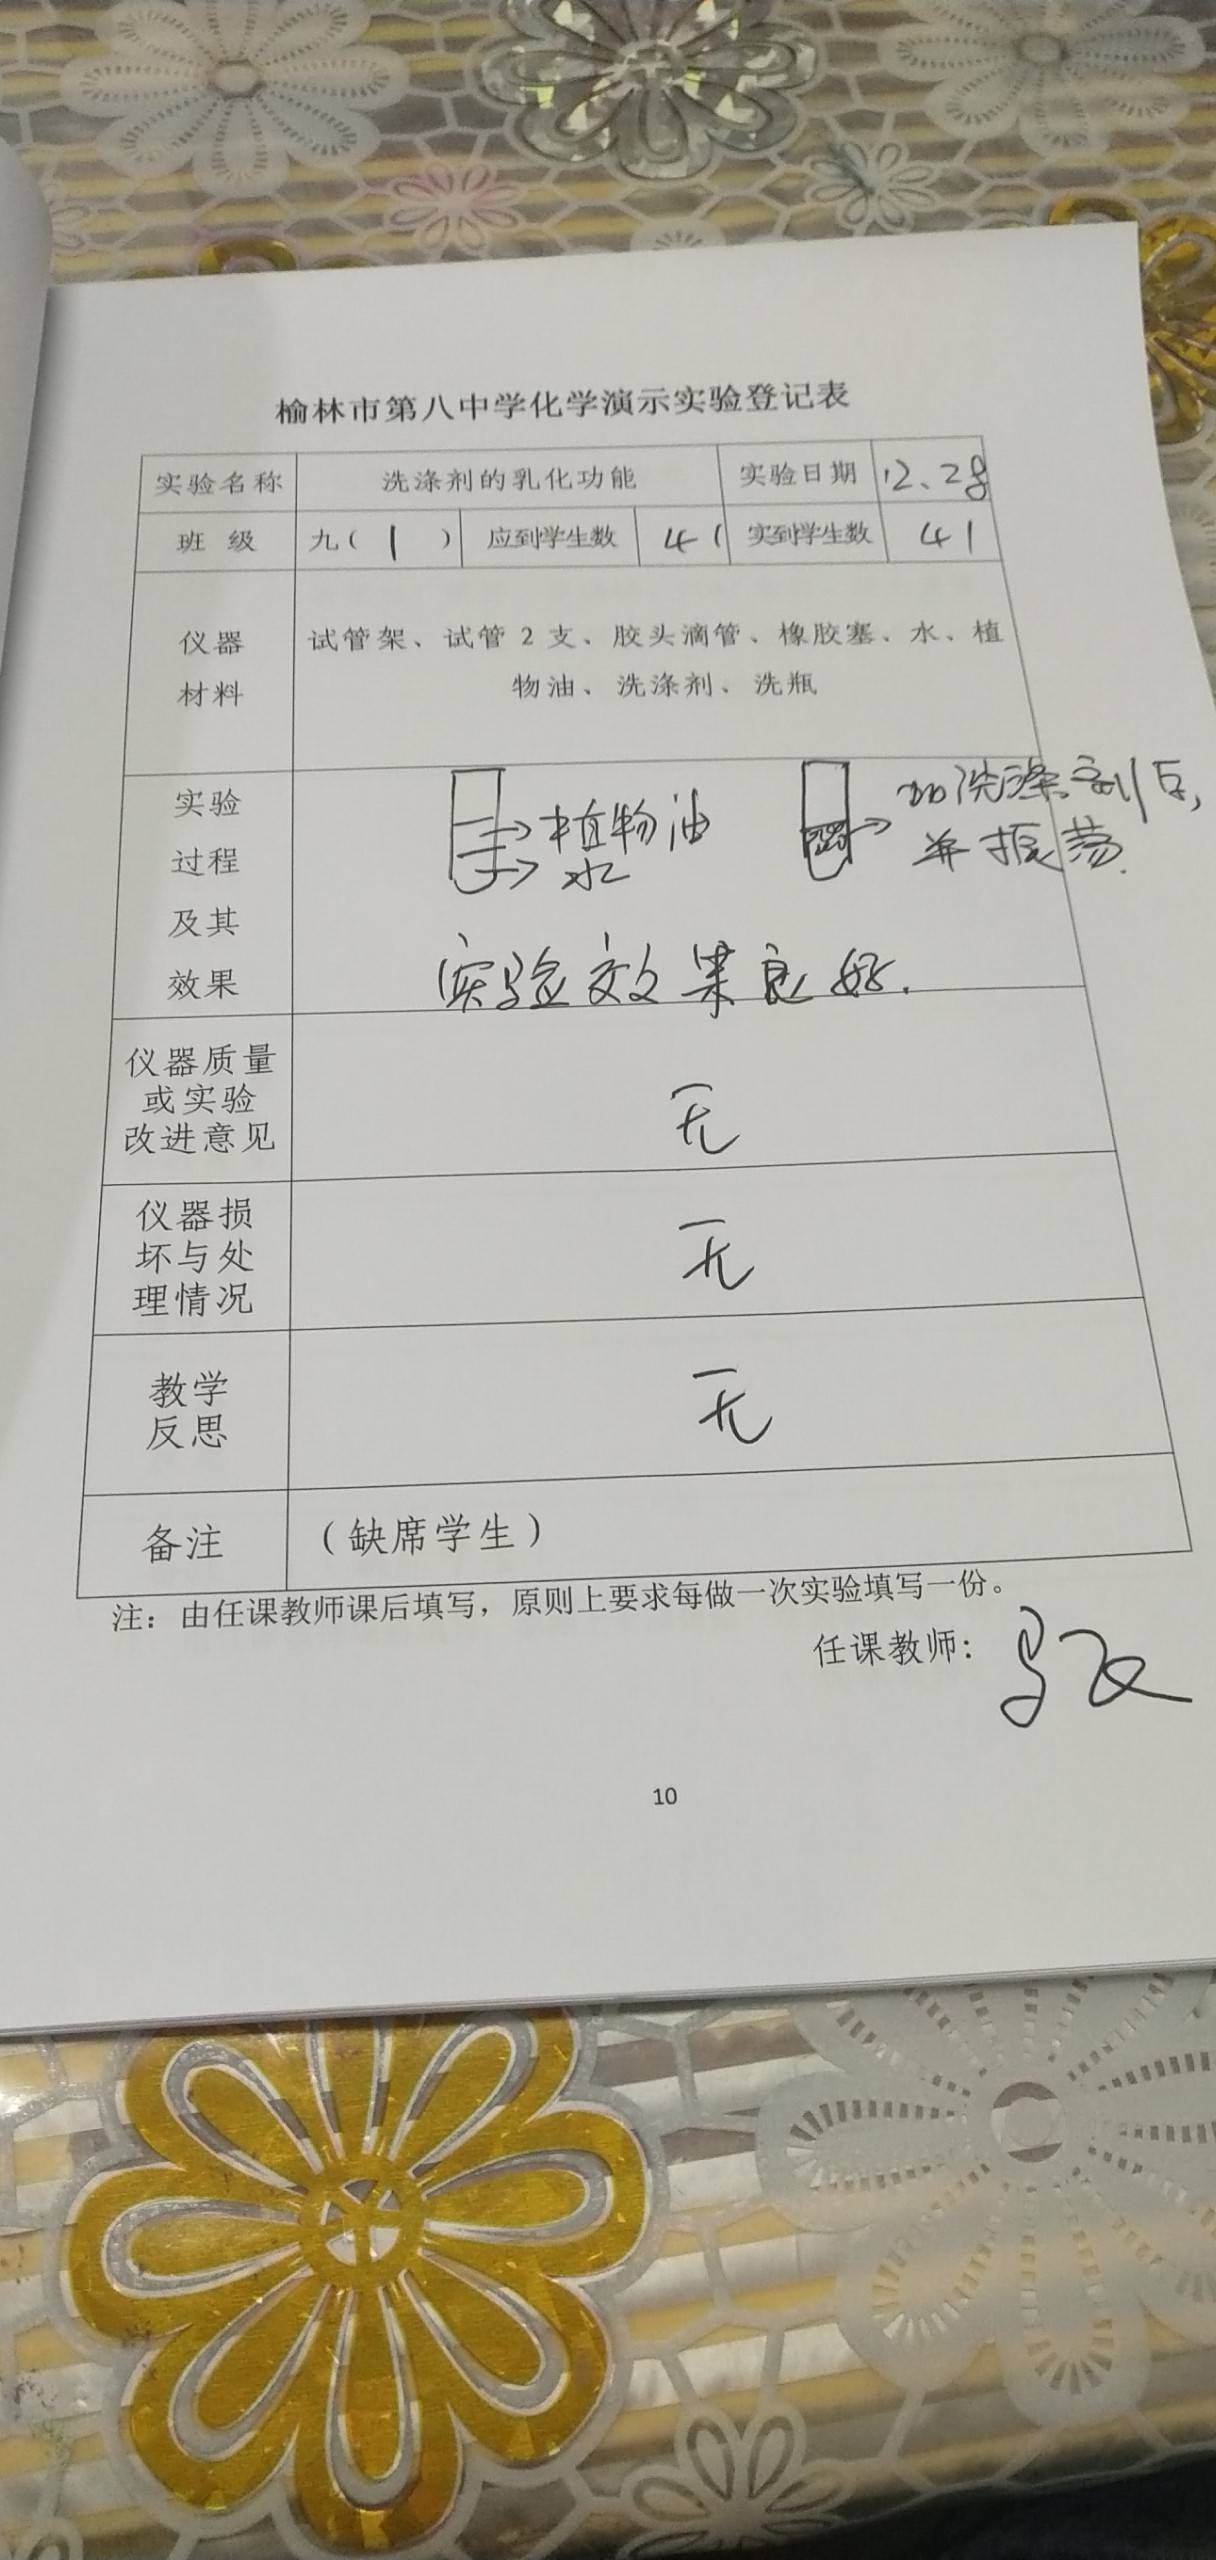 榆林市第八中学化学演示实验登记表
实验名称 洗涤剂的乳化功能 实验日期 12、28
班 级 九( 1 ) 应到学生数 41 实到学生数 41
仪器
材料
试管架、试管 2 支、胶头滴管、橡胶塞、水、植
物油、洗涤剂、洗瓶
实验
过程
及其
效果
植物油
水
加洗涤剂后,
并振荡.
实验效果良好.
仪器质量
或实验
改进意见
无
仪器损
坏与处
理情况
无
教学
反思
无
备注 (缺席学生)
注：由任课教师课后填写，原则上要求每做一次实验填写一份。
任课教师：
10